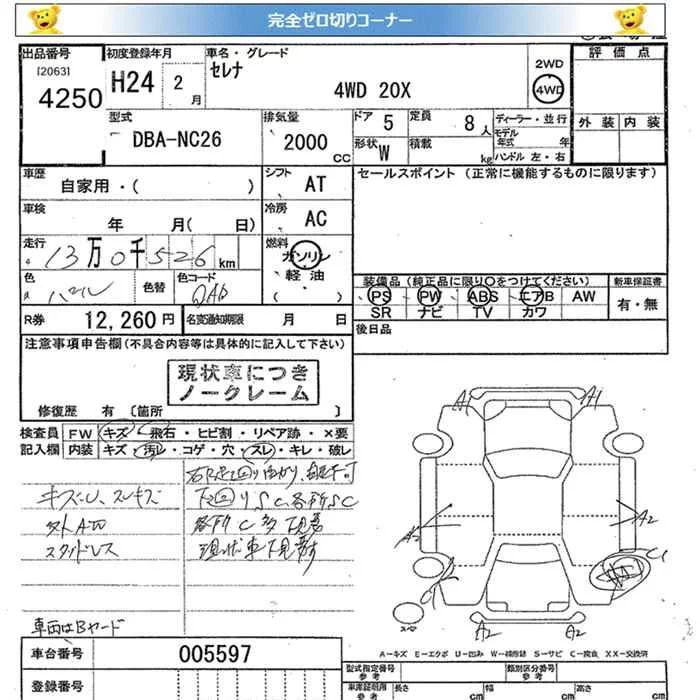 完全ゼロ切りコーナー
出品番号 初度登録年月 車名・グレード 評価点
[2063] セレナ 2WD
4250 H24 2月 4WD 20X 4WD
型式 排気量 ドア 5 定員 8人 ディーラー・並行 外装 内装
DBA-NC26 2000cc モデル年式 年
形状 W 積載 kg ハンドル 左・右
車歴 シフト セールスポイント (正常に機能するものに限ります)
自家用・( ) AT
車検 冷房
年 月( 日) AC
走行 燃料
13万0千526km ガソリン
軽油
( )
色 色替 色コード
パール QAB
装備品 (純正品に限り○をつけてください) 新車保証書
PS PW ABS エアB AW 有・無
SR ナビ TV カワ
R券 12,260円 名変通知期限 月 日
後日品
注意事項申告欄(不具合内容等は具体的に記入して下さい)
現状車につき
ノークレーム
修復歴 有 〔箇所 〕
検査員 FW キズ・飛石・ヒビ割・リペア跡・×要
記入欄 内装 キズ・汚レ・コゲ・穴・スレ・キレ・破レ
キズ・U、スレキズ
下回りSC、各所SC
外AW
各所C多 下見要
スタッドレス
現状車下見要す
車両はBヤード
A1 A1
A2 A2
C C
A2 A2
A-キズ E-エクボ U-凹み W-補修跡 S-サビ C-腐食 XX-交換済
車台番号 005597
登録番号
型式指定番号 類別区分番号
参考 参考
車庫証明用 長さ 幅 高さ
参考 cm cm cm